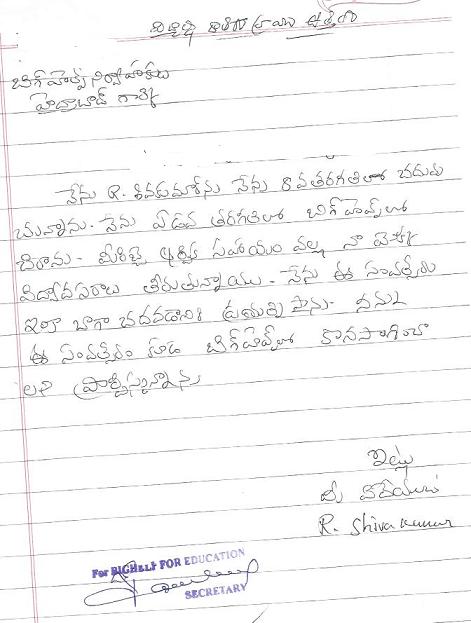 బిగ్‌హెల్ప్ నిర్వాహకులు
హైద్రాబాద్ గార్కి
నేను R. శివకుమార్‌ను నేను 8వ తరగతిలో చదువు
చున్నాను. నేను ఏడవ తరగతిలో బిగ్‌హెల్ప్‌లో
చేరాను. మీరిచ్చే ఆర్థిక సహాయం వల్ల నా యొక్క
విద్యావసరాలు తీరుతున్నాయి. నేను ఈ సంవత్సరం
ఇంకా బాగా చదవడానికి ప్రయత్నిస్తాను. నన్ను
ఈ సంవత్సరం కూడ బిగ్‌హెల్ప్‌లో కొనసాగించా
లని ప్రార్థిస్తున్నాను
ఇట్లు
మీ విధేయుడు
R. Shiva Kumar
For BIGHELP FOR EDUCATION
SECRETARY